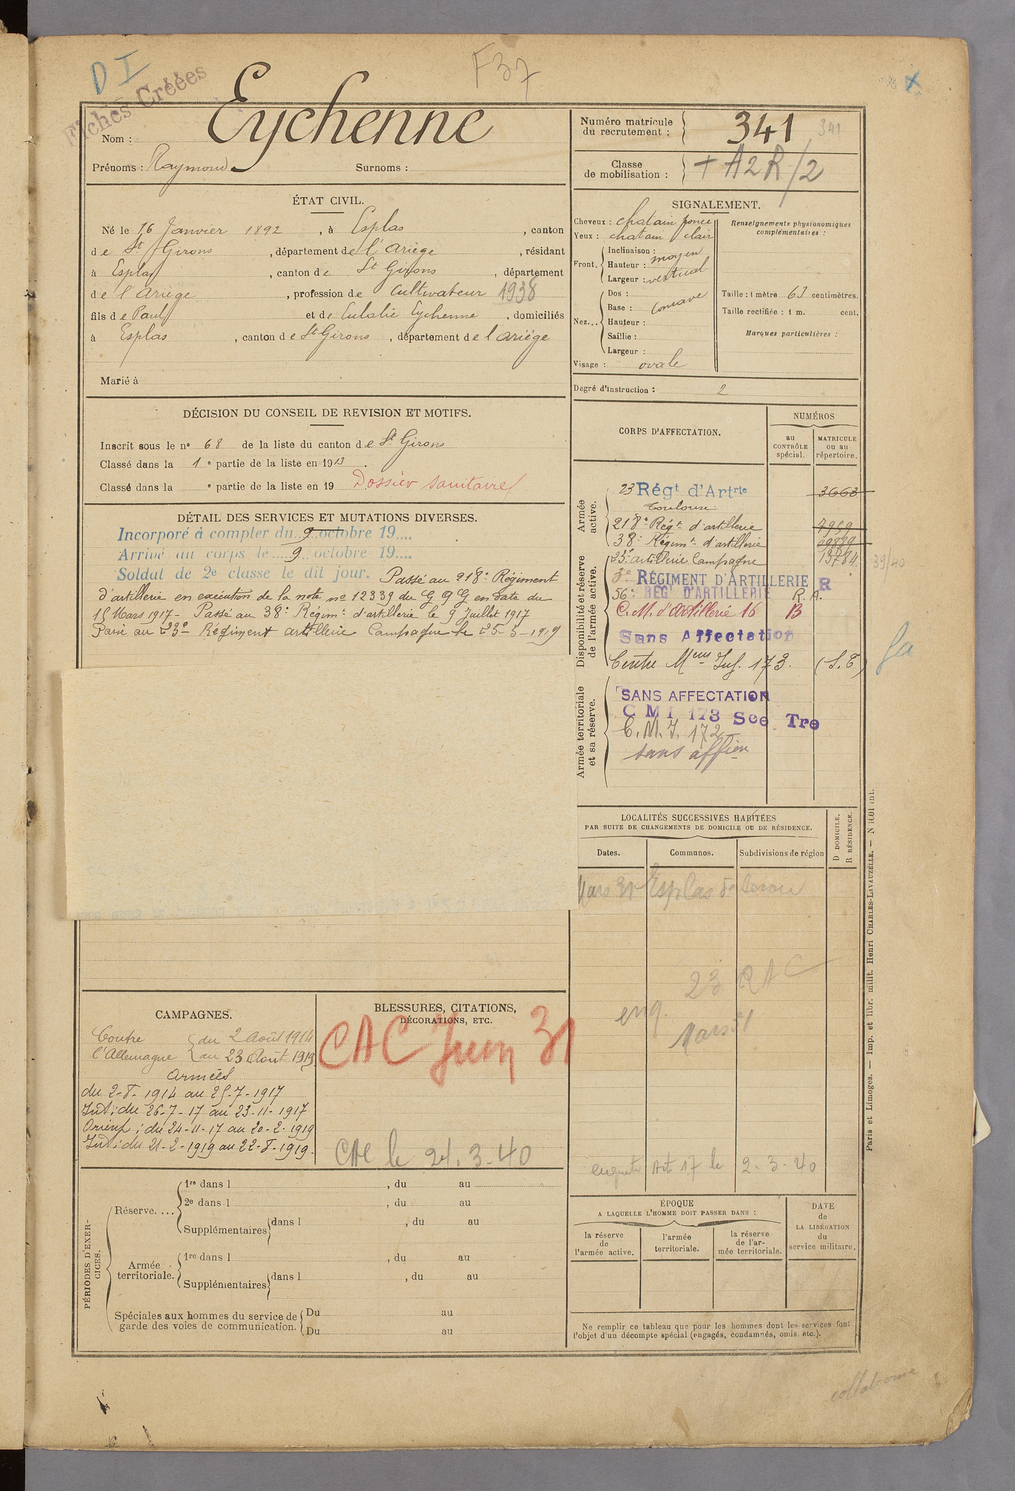 D I
F37
Fiches Créées
Nom : Eychenne
Prénoms : Raymond Surnoms :
Numéro matricule du recrutement : 341 341
Classe de mobilisation : + A2R/2
ÉTAT CIVIL.
Né le 16 Janvier 1892, à Esplas, canton
de St Girons, département de l'Ariège, résidant
à Esplas, canton de St Girons, département
de l'Ariège, profession de Cultivateur 1938
fils de Paul et de Eulalie Eychenne, domiciliés
à Esplas, canton de St Girons, département de l'Ariège
Marié à
SIGNALEMENT.
Cheveux : chatain foncé
Yeux : chatain clair
Front. Inclinaison :
Hauteur : moyen
Largeur : vertical
Nez... Dos :
Base : concave
Hauteur :
Saillie :
Largeur :
Visage : ovale
Renseignements physionomiques complémentaires :
Taille : 1 mètre 63 centimètres.
Taille rectifiée : 1 m. cent.
Marques particulières :
Degré d'instruction : 2
DÉCISION DU CONSEIL DE REVISION ET MOTIFS.
Inscrit sous le n° 68 de la liste du canton de St Girons
Classé dans la 1e partie de la liste en 1913.
Classé dans la e partie de la liste en 19 Dossier sanitaire
DÉTAIL DES SERVICES ET MUTATIONS DIVERSES.
Incorporé à compter du 9 octobre 19....
Arrivé au corps le 9 octobre 19....
Soldat de 2e classe le dit jour. Passé au 218e Régiment
d'artillerie en exécution de la note no 12339 du G Q G en date du
15 Mars 1917 - Passé au 38e Régimt d'artillerie le 9 Juillet 1917
Passé au 23e Régiment artillerie Campagne le 25-5-1919
CORPS D'AFFECTATION.
NUMÉROS
au CONTRÔLE spécial.
MATRICULE ou au répertoire.
Armée active.
23 Régt d'Artrie 3663
Toulouse
218e Régt d'artillerie
38e Régimt d'artillerie
Disponibilité et réserve de l'armée active.
23e artillerie Campagne 13784 39/40
3e RÉGIMENT D'ARTILLERIE R
56e RÉGt D'ARTILLERIE R.A.
C.M. d'artillerie 16 B
Sans Affectation
Centre Mem Inf. 173. (S.T)
Armée territoriale et sa réserve.
SANS AFFECTATION
C M I 173 Sec Tre
C.M.I. 172
sans affion
LOCALITÉS SUCCESSIVES HABITÉES
PAR SUITE DE CHANGEMENTS DE DOMICILE OU DE RÉSIDENCE.
Dates. Communes. Subdivisions de région
D DOMICILE. R RÉSIDENCE.
Mars 31 Esplas de Serou
23 RAC
enq. Mars 31
enquete Art 17 le 2-3-40
CAMPAGNES.
Contre l'Allemagne du 2 Août 1914
au 23 Août 1919
Armées
du 2-8-1914 au 25-7-1917
Int; du 26-7-17 au 23-11-1917
Orient; du 24-11-17 au 20-2-1919
Int; du 21-2-1919 au 22-8-1919.
BLESSURES, CITATIONS,
DÉCORATIONS, ETC.
CAC Juin 31
CAC le 24.3.40
PÉRIODES D'EXERCICES.
Réserve.... 1re dans l , du au
2e dans l , du au
Supplémentaires dans l , du au
Armée territoriale. 1re dans l , du au
Supplémentaires dans l , du au
Spéciales aux hommes du service de garde des voies de communication. Du au
Du au
ÉPOQUE
A LAQUELLE L'HOMME DOIT PASSER DANS :
la réserve de l'armée active.
l'armée territoriale.
la réserve de l'armée territoriale.
DATE de LA LIBÉRATION du service militaire.
Ne remplir ce tableau que pour les hommes dont les services font
l'objet d'un décompte spécial (engagés, condamnés, omis, etc.).
Paris et Limoges. — Imp. et libr. milit. Henri CHARLES-LAVAUZELLE.